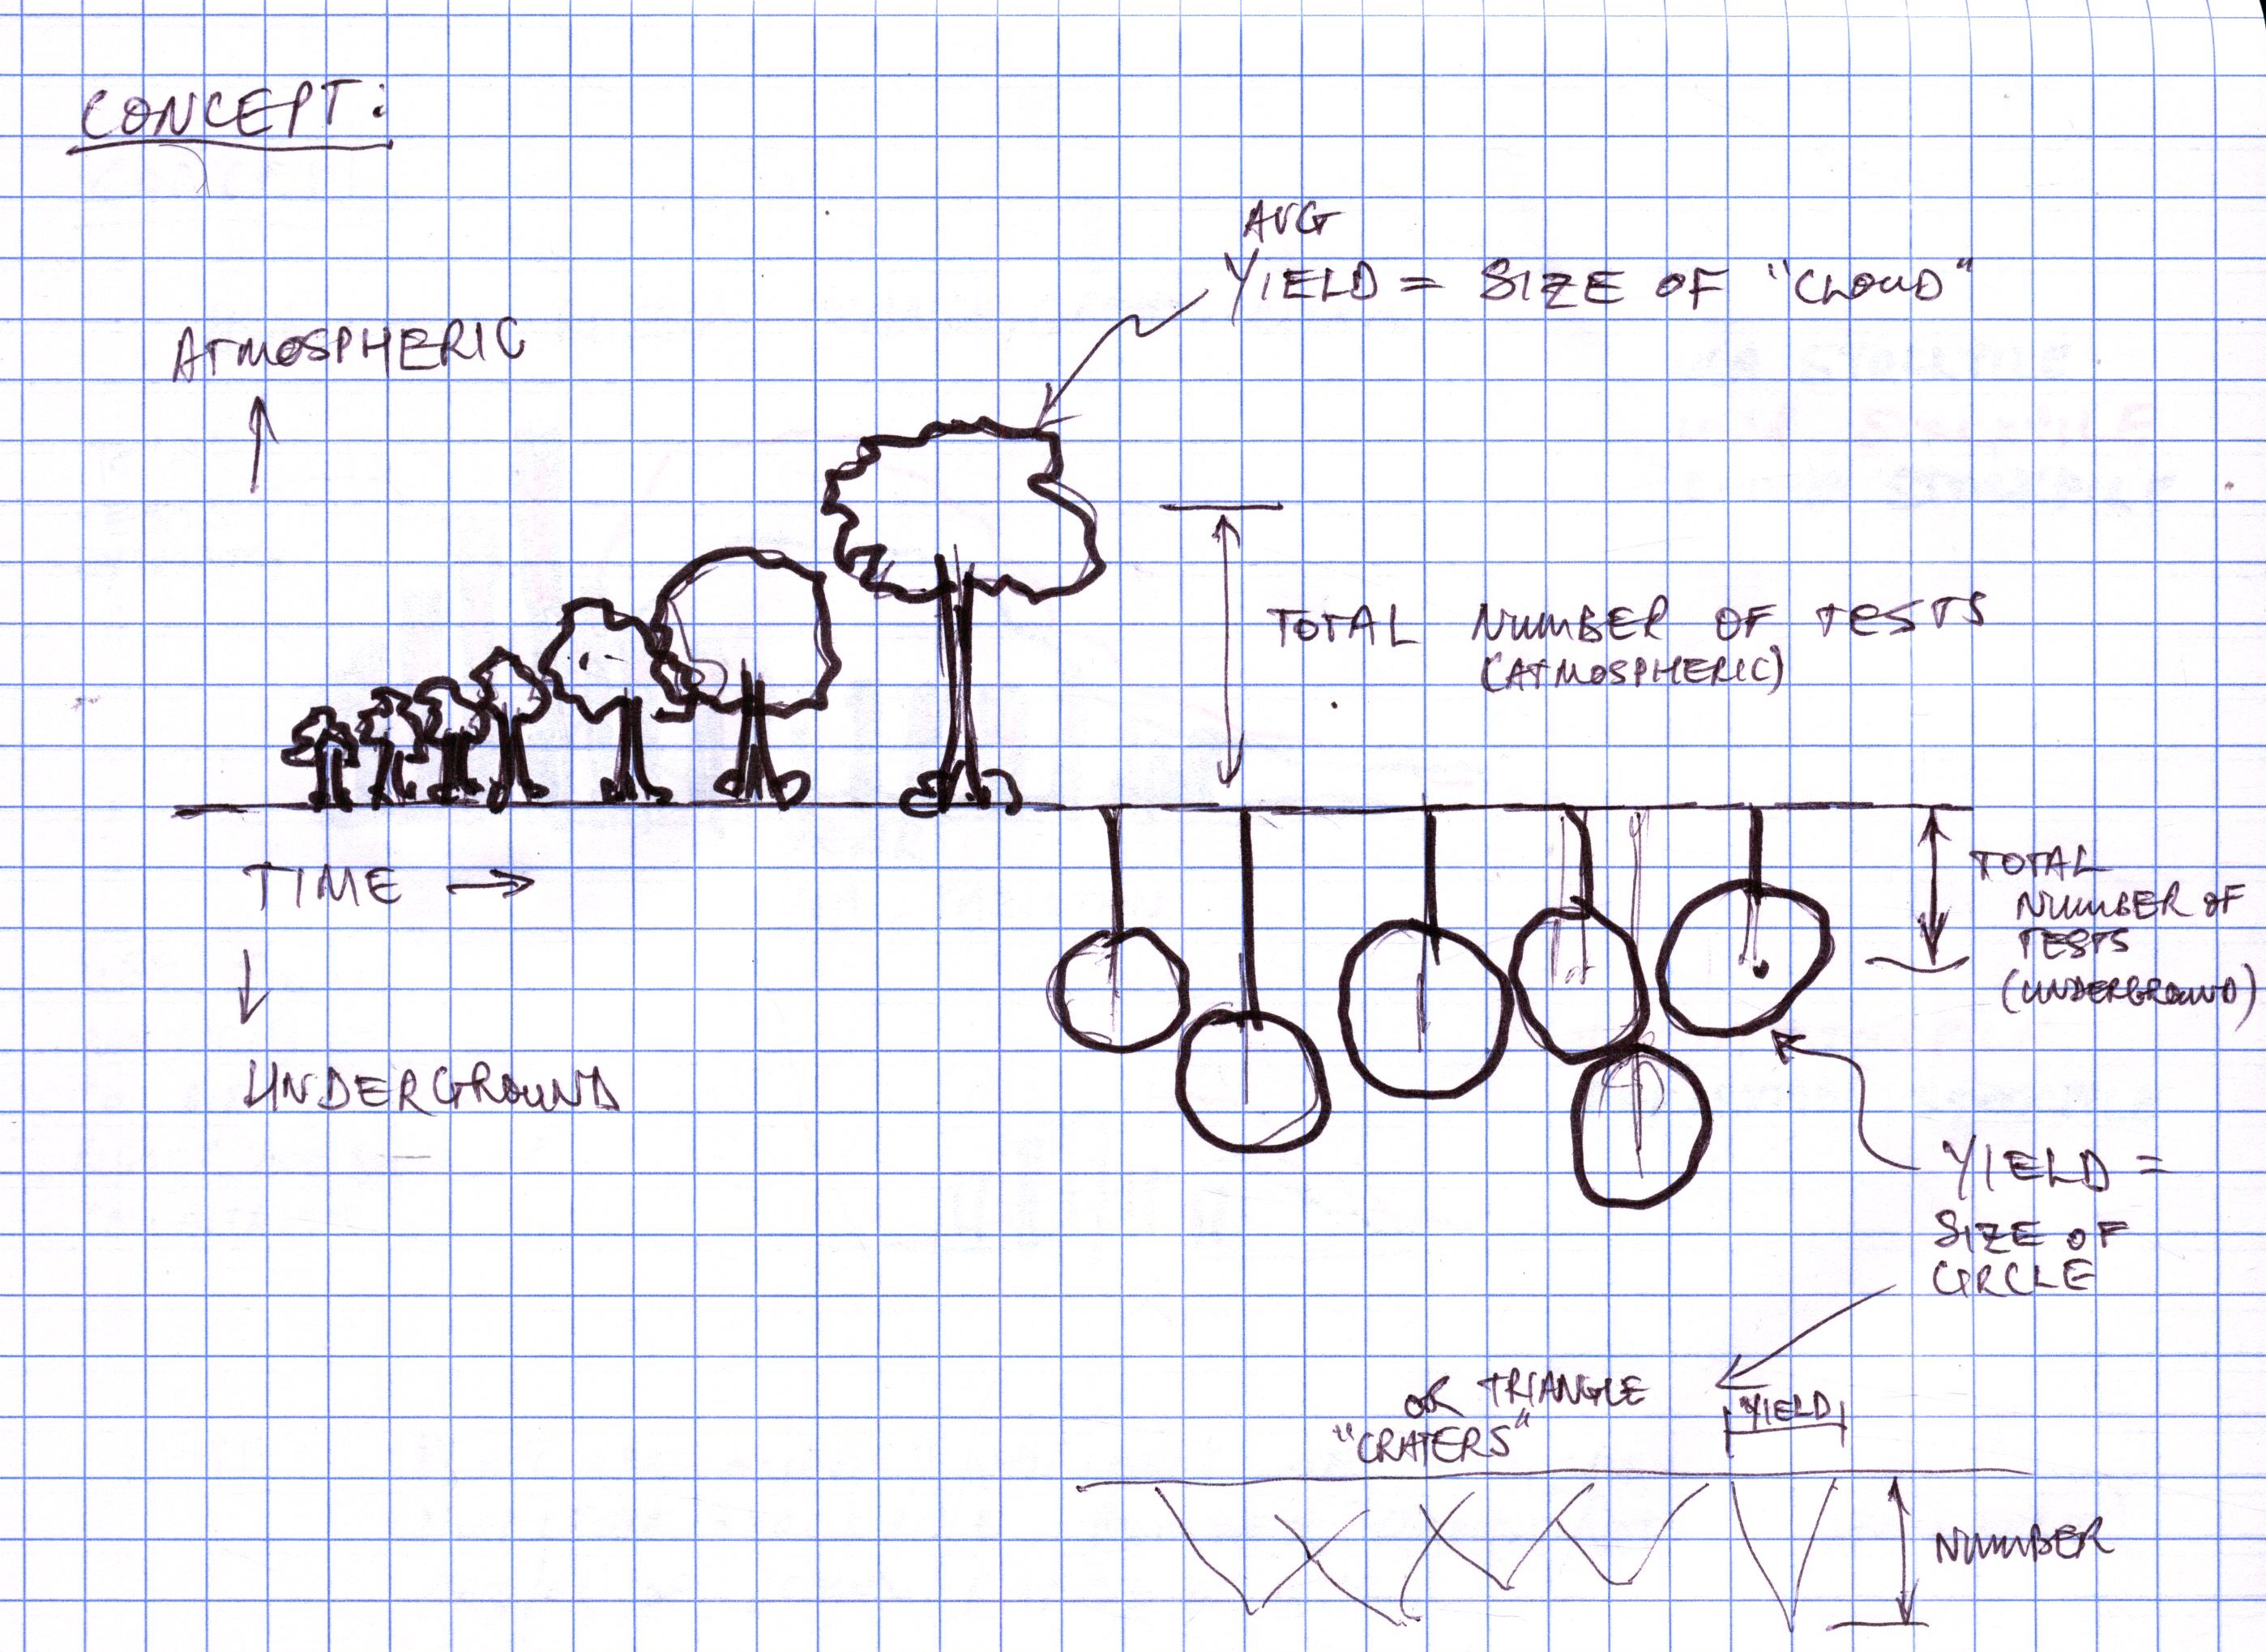 CONCEPT:
AVG
YIELD = SIZE OF "CLOUD"
ATMOSPHERIC
TOTAL NUMBER OF TESTS
(ATMOSPHERIC)
TIME →
TOTAL
NUMBER OF
TESTS
(UNDERGROUND)
UNDERGROUND
YIELD =
SIZE OF
CIRCLE
OR TRIANGLE
"CRATERS"
YIELD
NUMBER